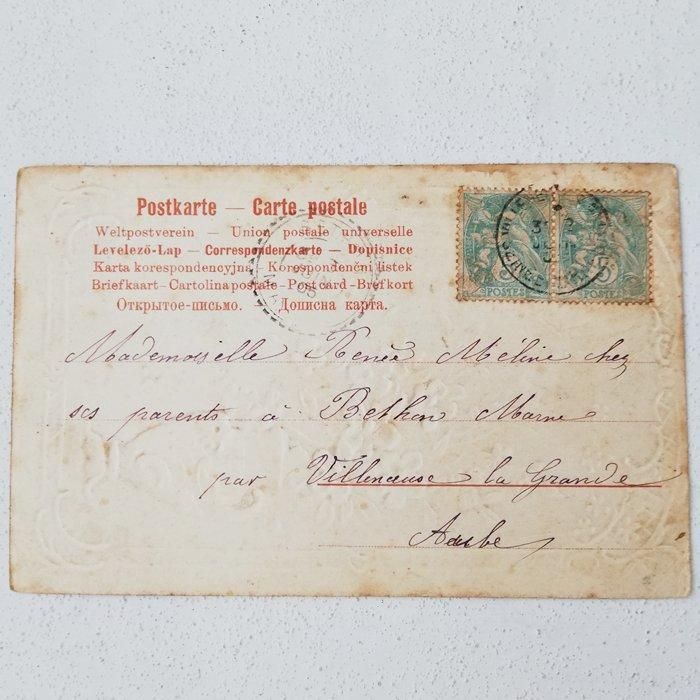 Postkarte — Carte postale
Weltpostverein – Union postale universelle
Levelező-Lap – Correspondenzkarte – Dopisnice
Karta korespondencyjna – Korespondenční lístek
Briefkaart – Cartolina postale – Post card – Brefkort
Открытое-письмо. – Дописна карта.
POSTES
POSTES
Mademoiselle Renée Méline chez
ses parents à Bethon Marne
par Villenauxe la Grande
Aube